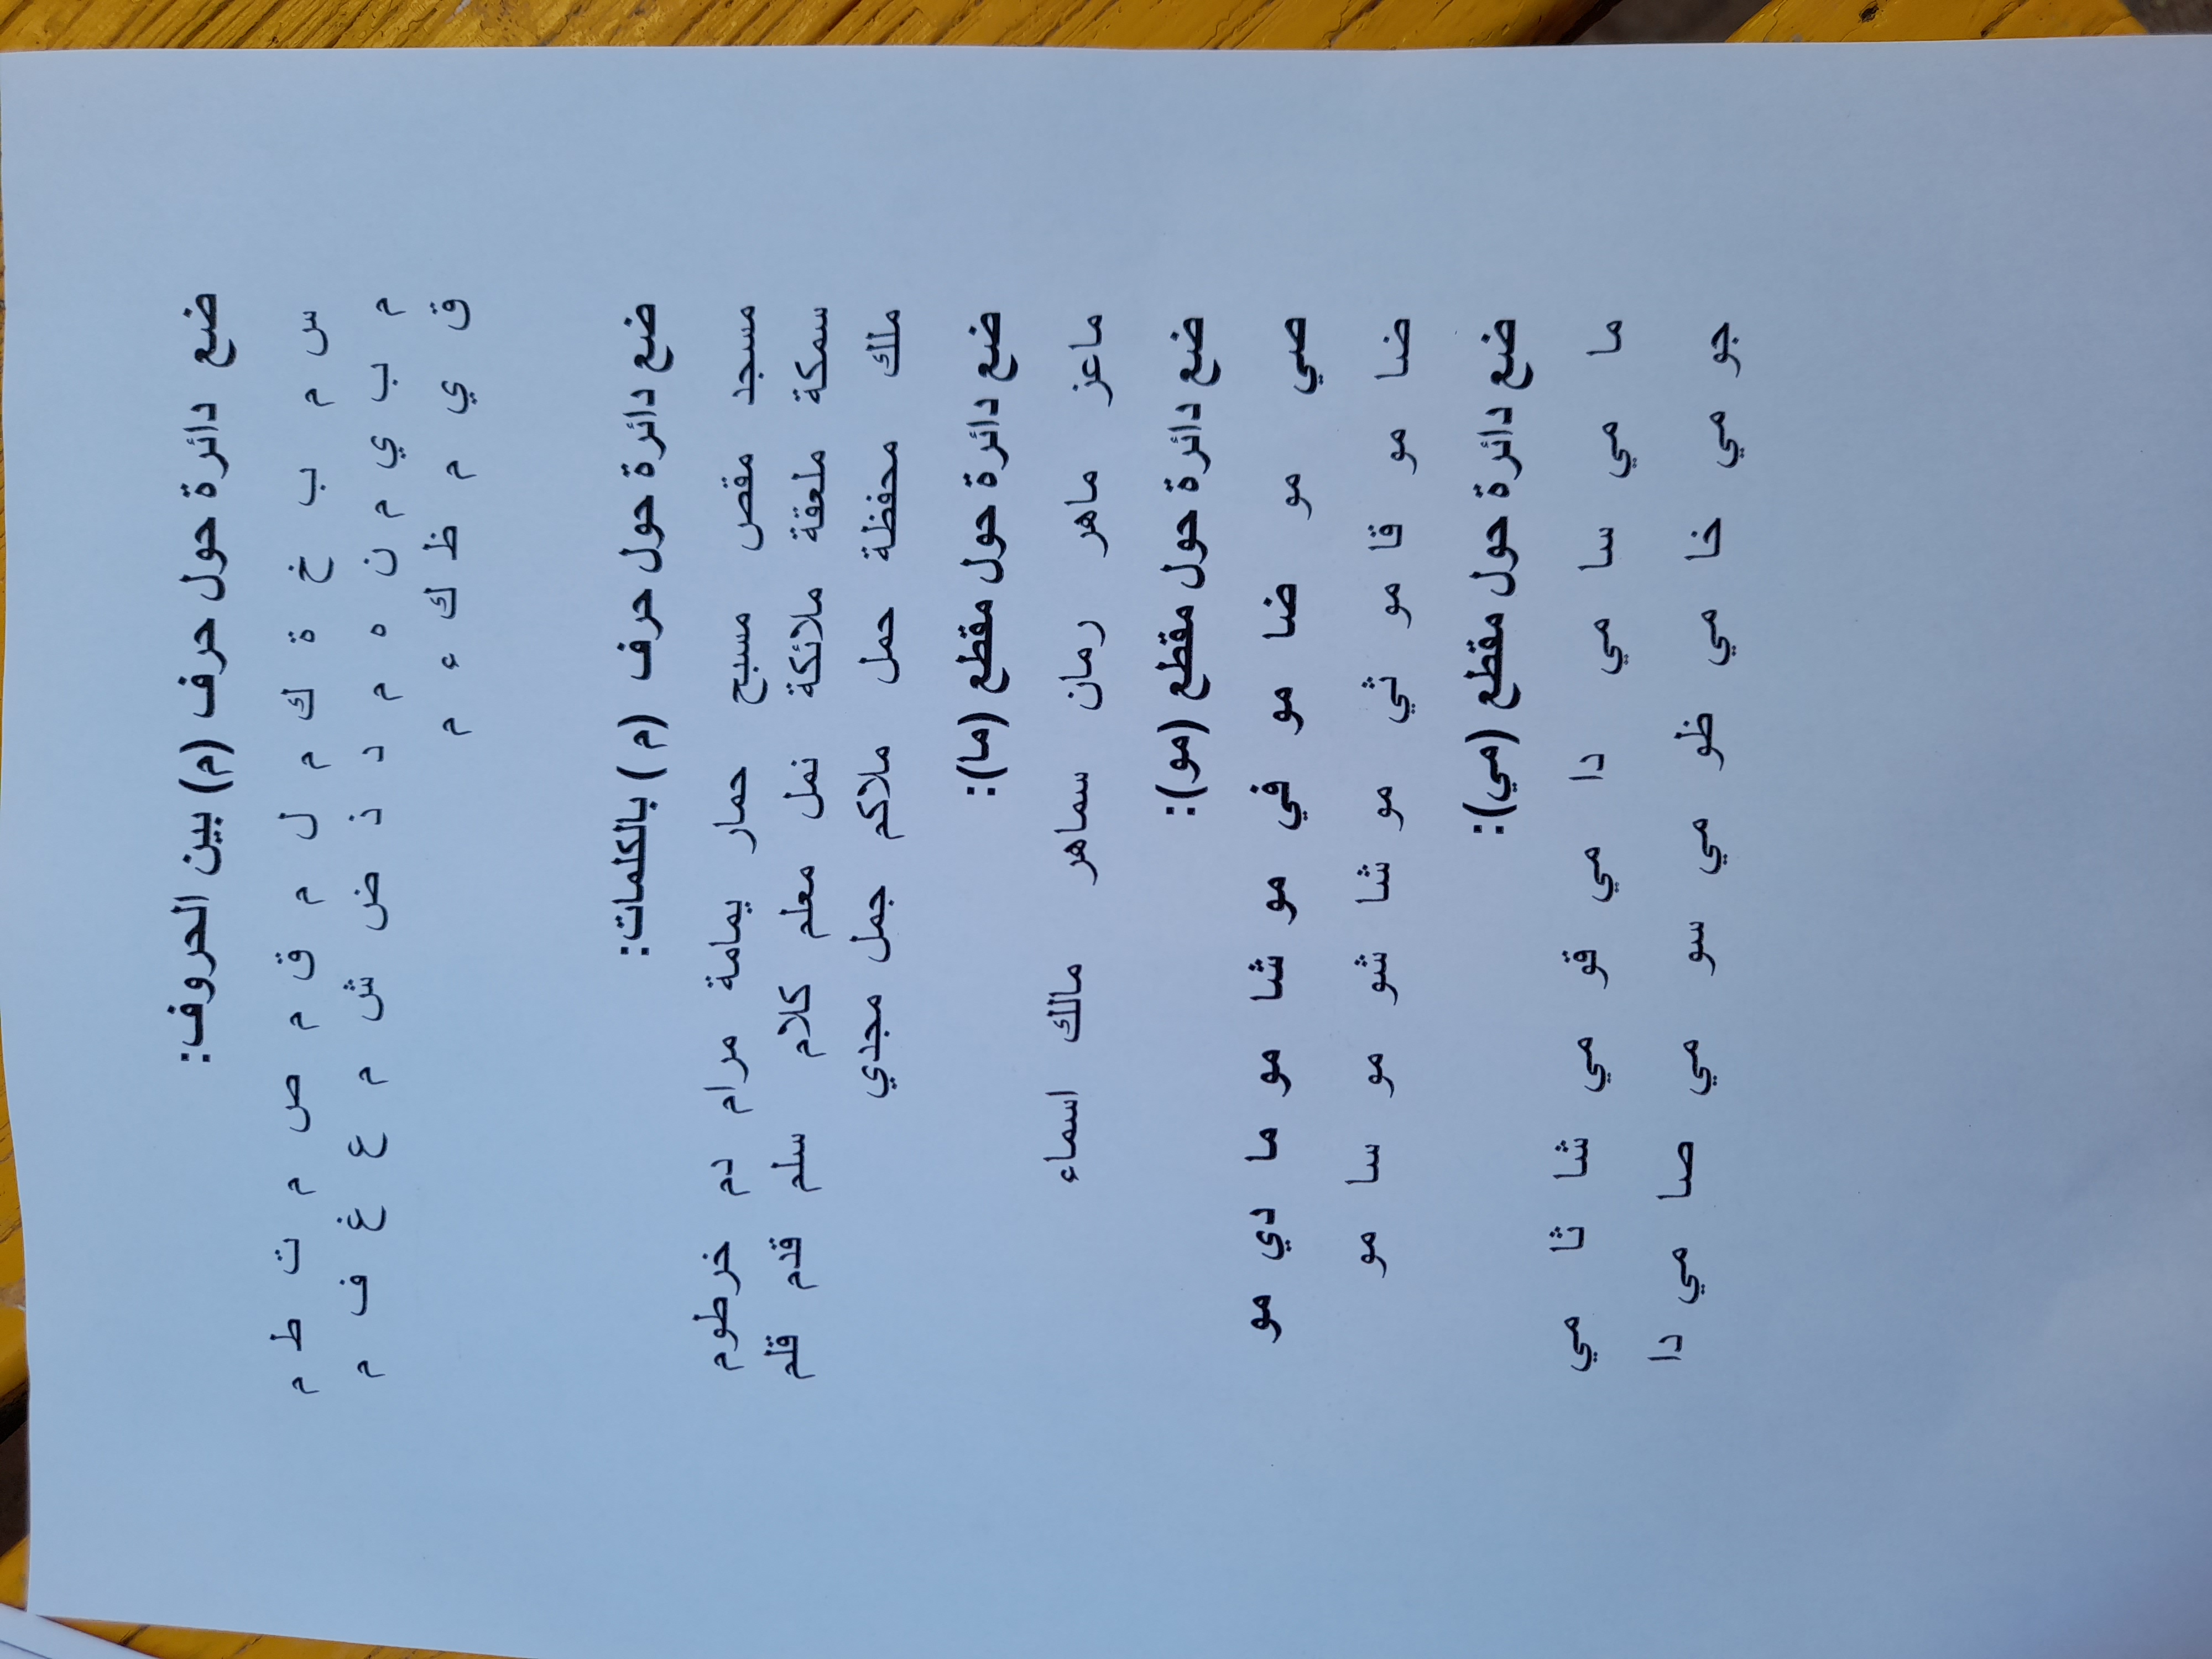 ضع دائرة حول حرف (م) بين الحروف:
س م ب خ ة ك م ل م ق م ص م ت ط م
م ب ي م ن ه م د ذ ض ش م ع غ ف م
ق ي م ظ ك ء م
ضع دائرة حول حرف (م) بالكلمات:
مسجد مقص مسبح حمار يمامة مرام دم خرطوم
سمكة ملعقة ملائكة نمل معلم كلام سلم قدم قلم
ملك محفظة حمل ملاكم جمل مجدي
ضع دائرة حول مقطع (ما):
ماعز ماهر رمان سماهر مالك اسماء
ضع دائرة حول مقطع (مو):
صي مو ضا مو في مو شا مو ما دي مو
ضا مو قا مو ثي مو شا شو مو سا مو
ضع دائرة حول مقطع (مي):
ما مي سا مي دا مي قو مي شا ثا مي
جو مي خا مي ظو مي سو مي صا مي دا